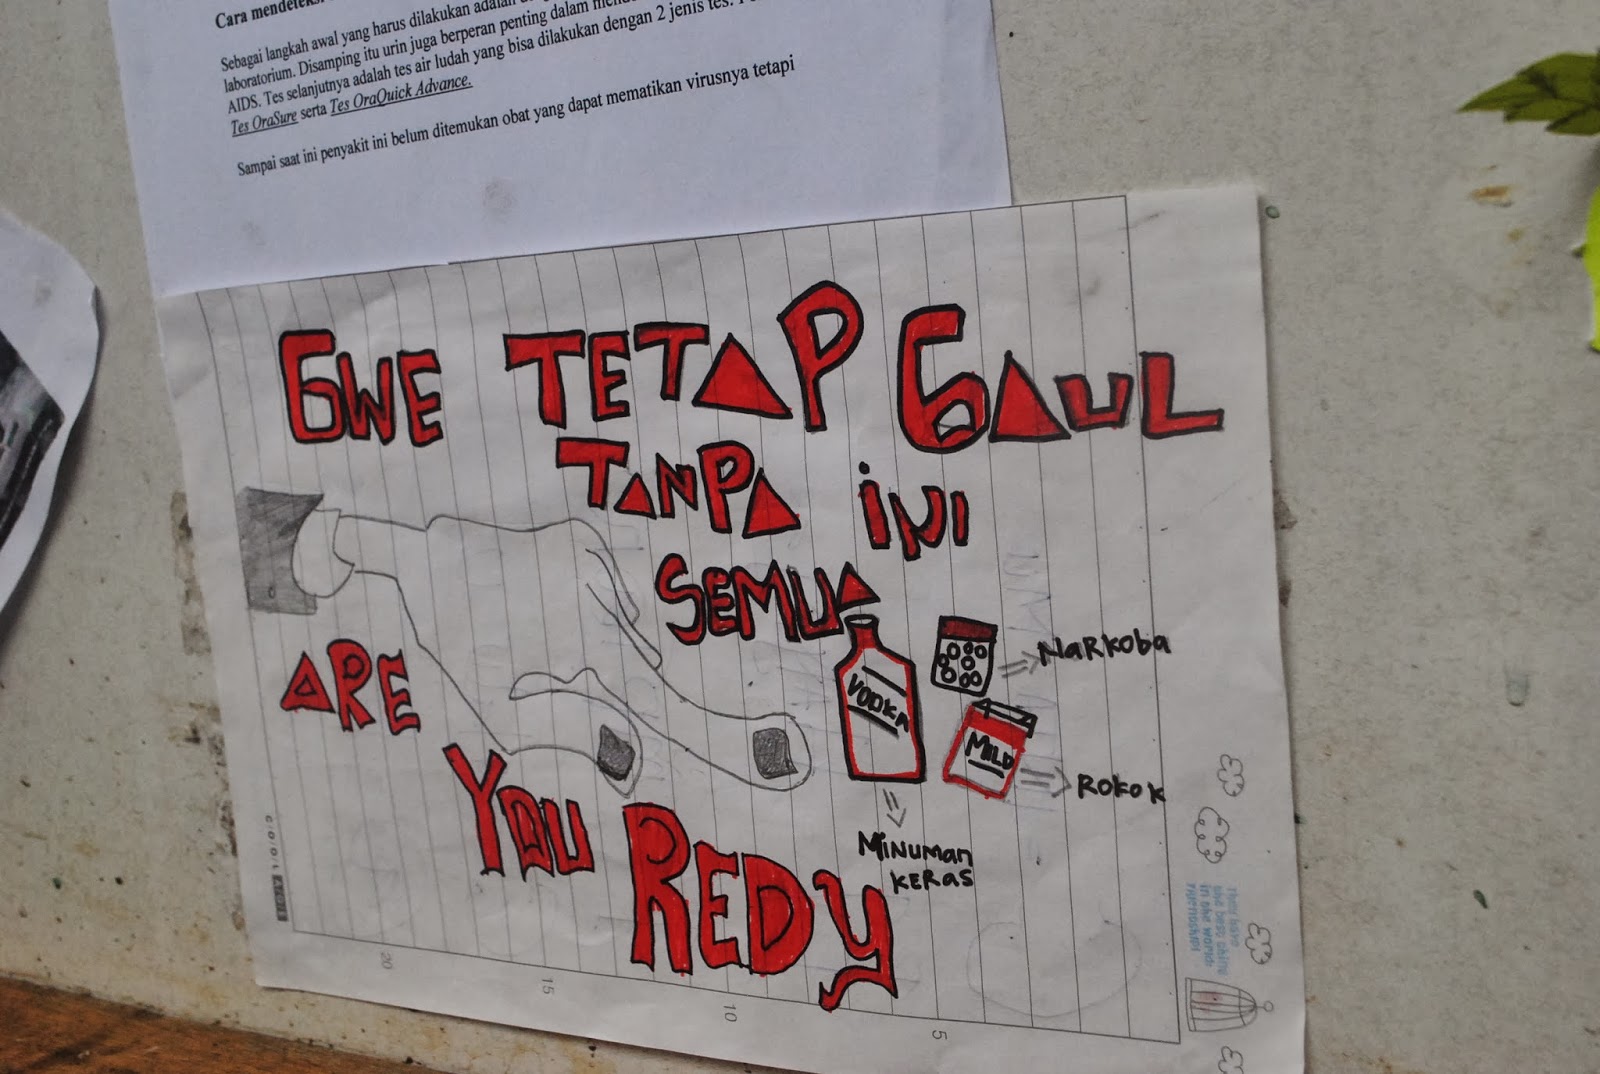 Cara mendeteksi
Sebagai langkah awal yang harus dilakukan adalah
laboratorium. Disamping itu urin juga berperan penting dalam
AIDS. Tes selanjutnya adalah tes air ludah yang bisa dilakukan dengan 2 jenis tes.
Tes OraSure serta Tes OraQuick Advance.
Sampai saat ini penyakit ini belum ditemukan obat yang dapat mematikan virusnya tetapi
GWE TETAP GAUL
TANPA iNI
SEMUA
ARE
YOU REDY
VODKA
MILD
NaRkoba
ROKOK
MiNUMan
KeRaS
20
15
10
5
They have
the best
in the world:
FRIENDSHIP!